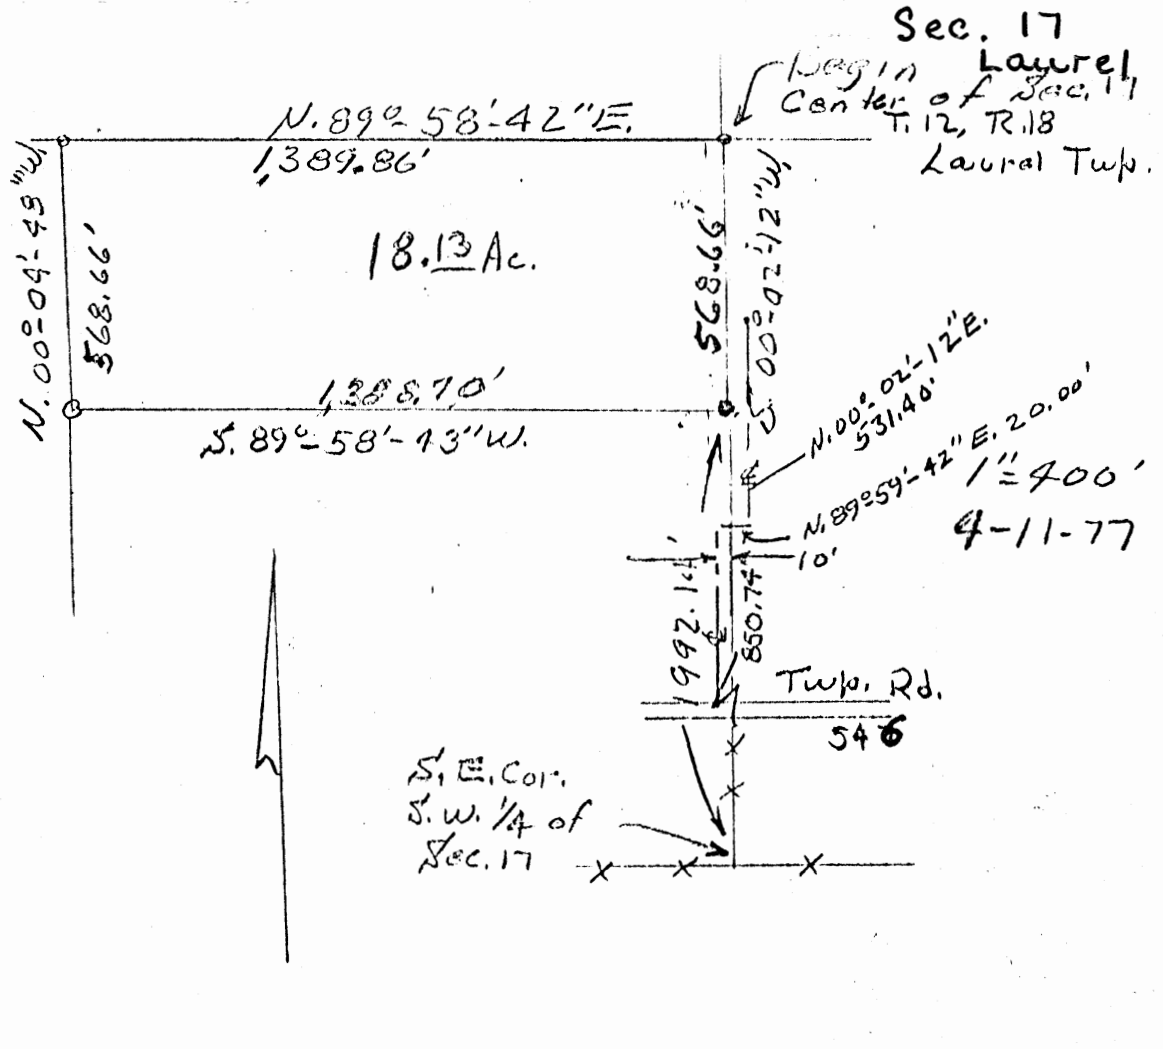 Sec. 17
Laurel
Begin
Center of Sec. 17
T. 12, R. 18
Laural Twp.
N. 89º-58'-42" E.
1,389.86'
N. 00º-04'-43" W.
568.66'
18.13 Ac.
568.66'
S. 00º-02'-12" W.
1,388.70'
S. 89º-58'-43" W.
N. 00º-02'-12" E.
531.40'
N. 89º-59'-42" E. 20.00'
1"=400'
4-11-77
10'
1992.14'
850.74'
Twp. Rd.
546
S. E. Cor.
S. W. 1/4 of
Sec. 17